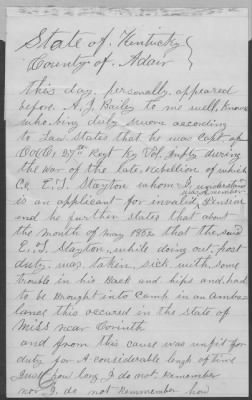 State of Kentucky
County of Adair
this day personally appeared
before A. J. Bailey to me well known
who being duly sworn according
to Law states that he was Capt of
Co C, 27th Regt Ky Vol Infty during
the war of the late Rebellion of which
Co E. T. Slayton whom I understand
is an applicant for invalid Pension
and he further states that about
the month of may 1862 that the said
E. T. Slayton while doing out post
duty was taken sick with some
trouble in his Back and hips and had
to be brought into camp in an ambu
lance this occured in the state of
Miss near Corinth
and from this cause was unfit for
duty for a considerable length of time
Just how long I do not Remember
nor I do not Remmember how